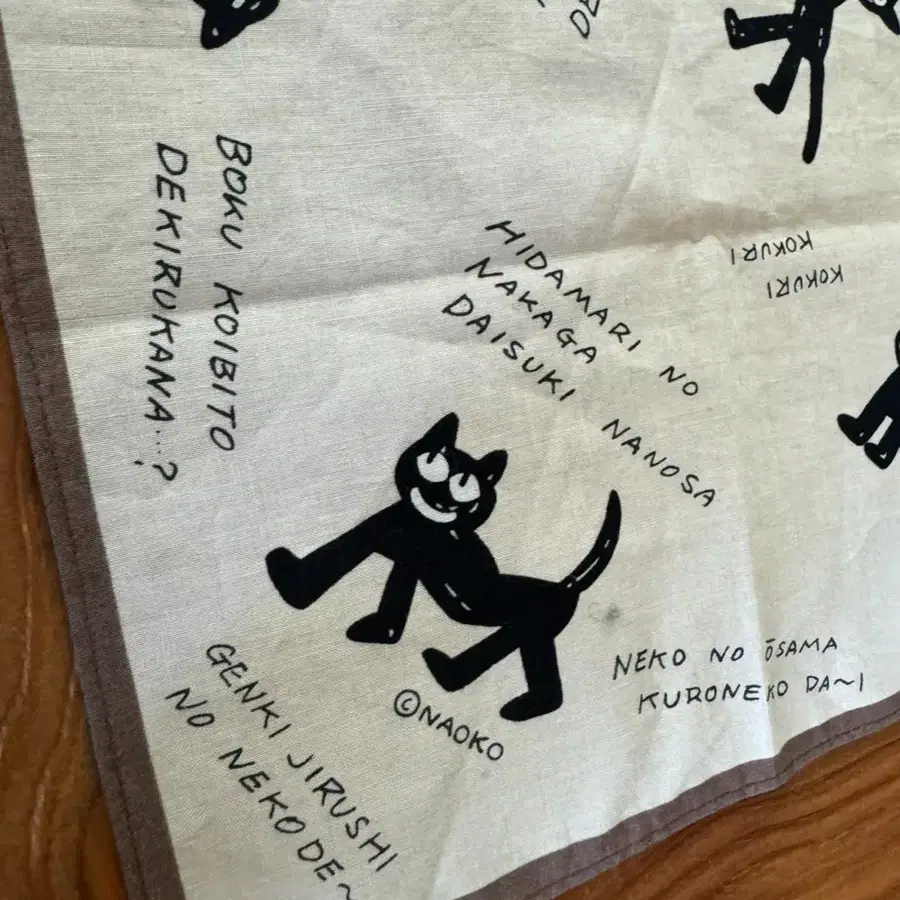 BOKU KOIBITO
DEKIRUKANA...?
HIDAMARI NO
NAKAGA
DAISUKI NANOSA
KOKURI
KOKURI
NEKO NO ŌSAMA
KURONEKO DA~!
©NAOKO
GENKI JIRUSHI
NO NEKO DE~